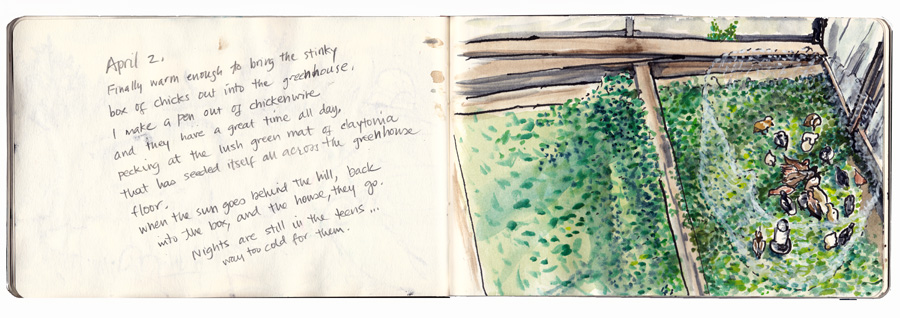 April 2.
Finally warm enough to bring the stinky
box of chicks out into the greenhouse.
I make a pen out of chickenwire
and they have a great time all day,
pecking at the lush green mat of claytonia
that has seeded itself all across the greenhouse
floor.
when the sun goes behind the hill, back
into the box, and the house, they go.
Nights are still in the teens...
way too cold for them.